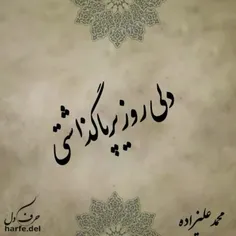 دلی روز پر ماگذاشتی
محمد علیزاده
حرف دل
harfe.del